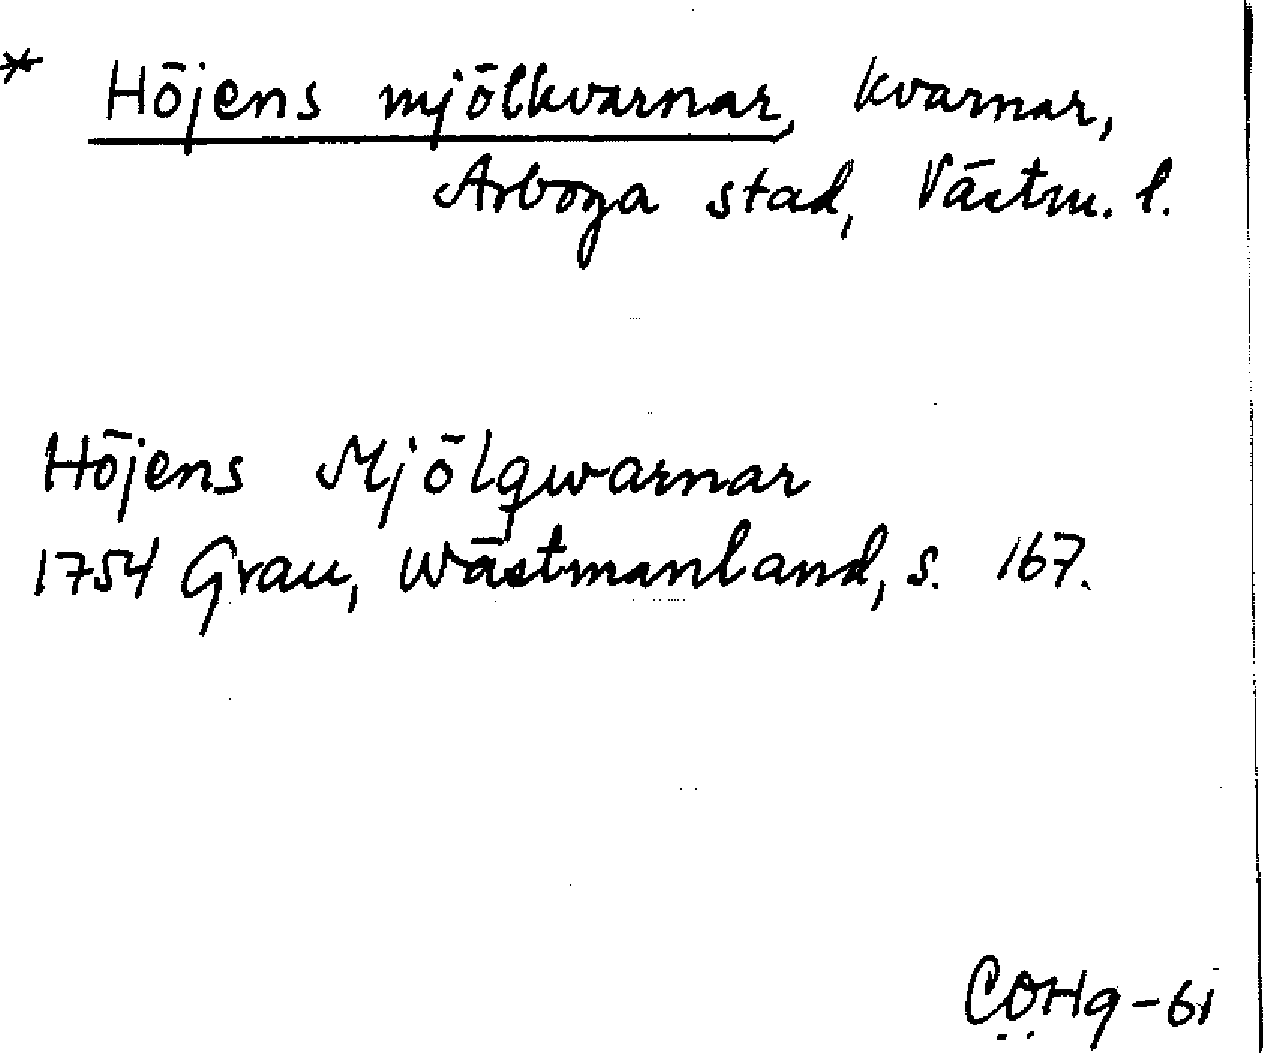 * Höjens mjölkvarnar, kvarnar,
Arboga stad, Västm. l.
Höjens Mjölqwarnar
1754 Grau, Wästmanland, s. 167.
COHg-61